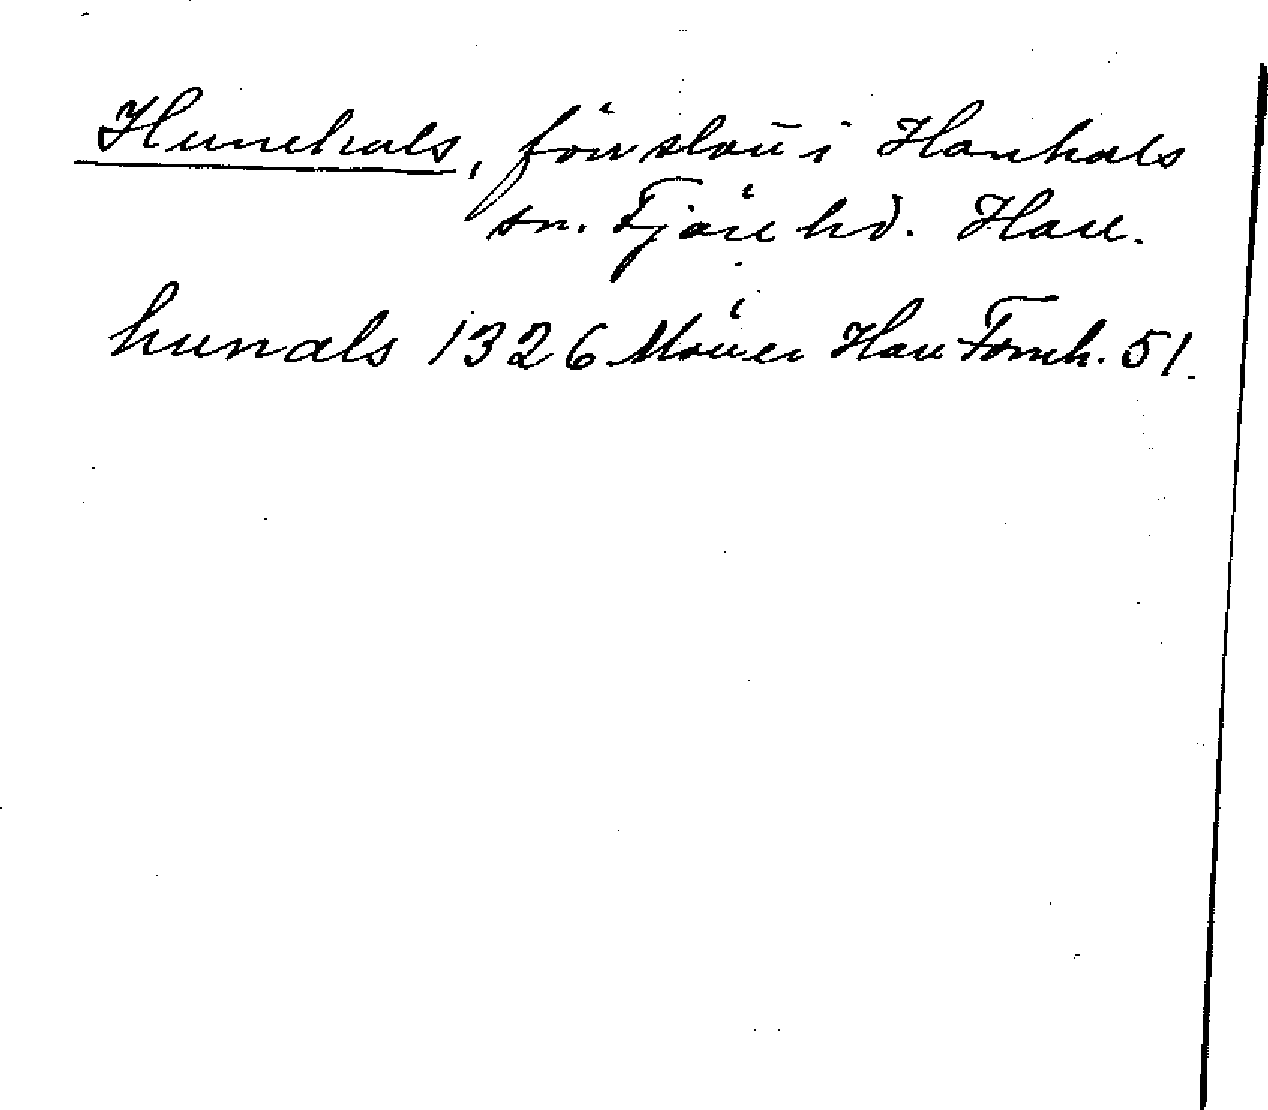 Hunehals, försv. i Hanhals
sn. Fjäre hd. Hall.
hunals 1326 Hall Fornh. 51.